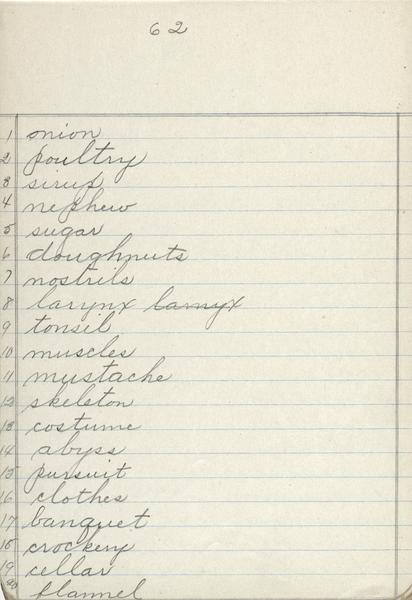 62
1 onion
2 poultry
3 sirup
4 nephew
5 sugar
6 doughnuts
7 nostrils
8 larynx larnyx
9 tonsil
10 muscles
11 mustache
12 skeleton
13 costume
14 abyss
15 pursuit
16 clothes
17 banquet
18 crockery
19 cellar
20 flannel